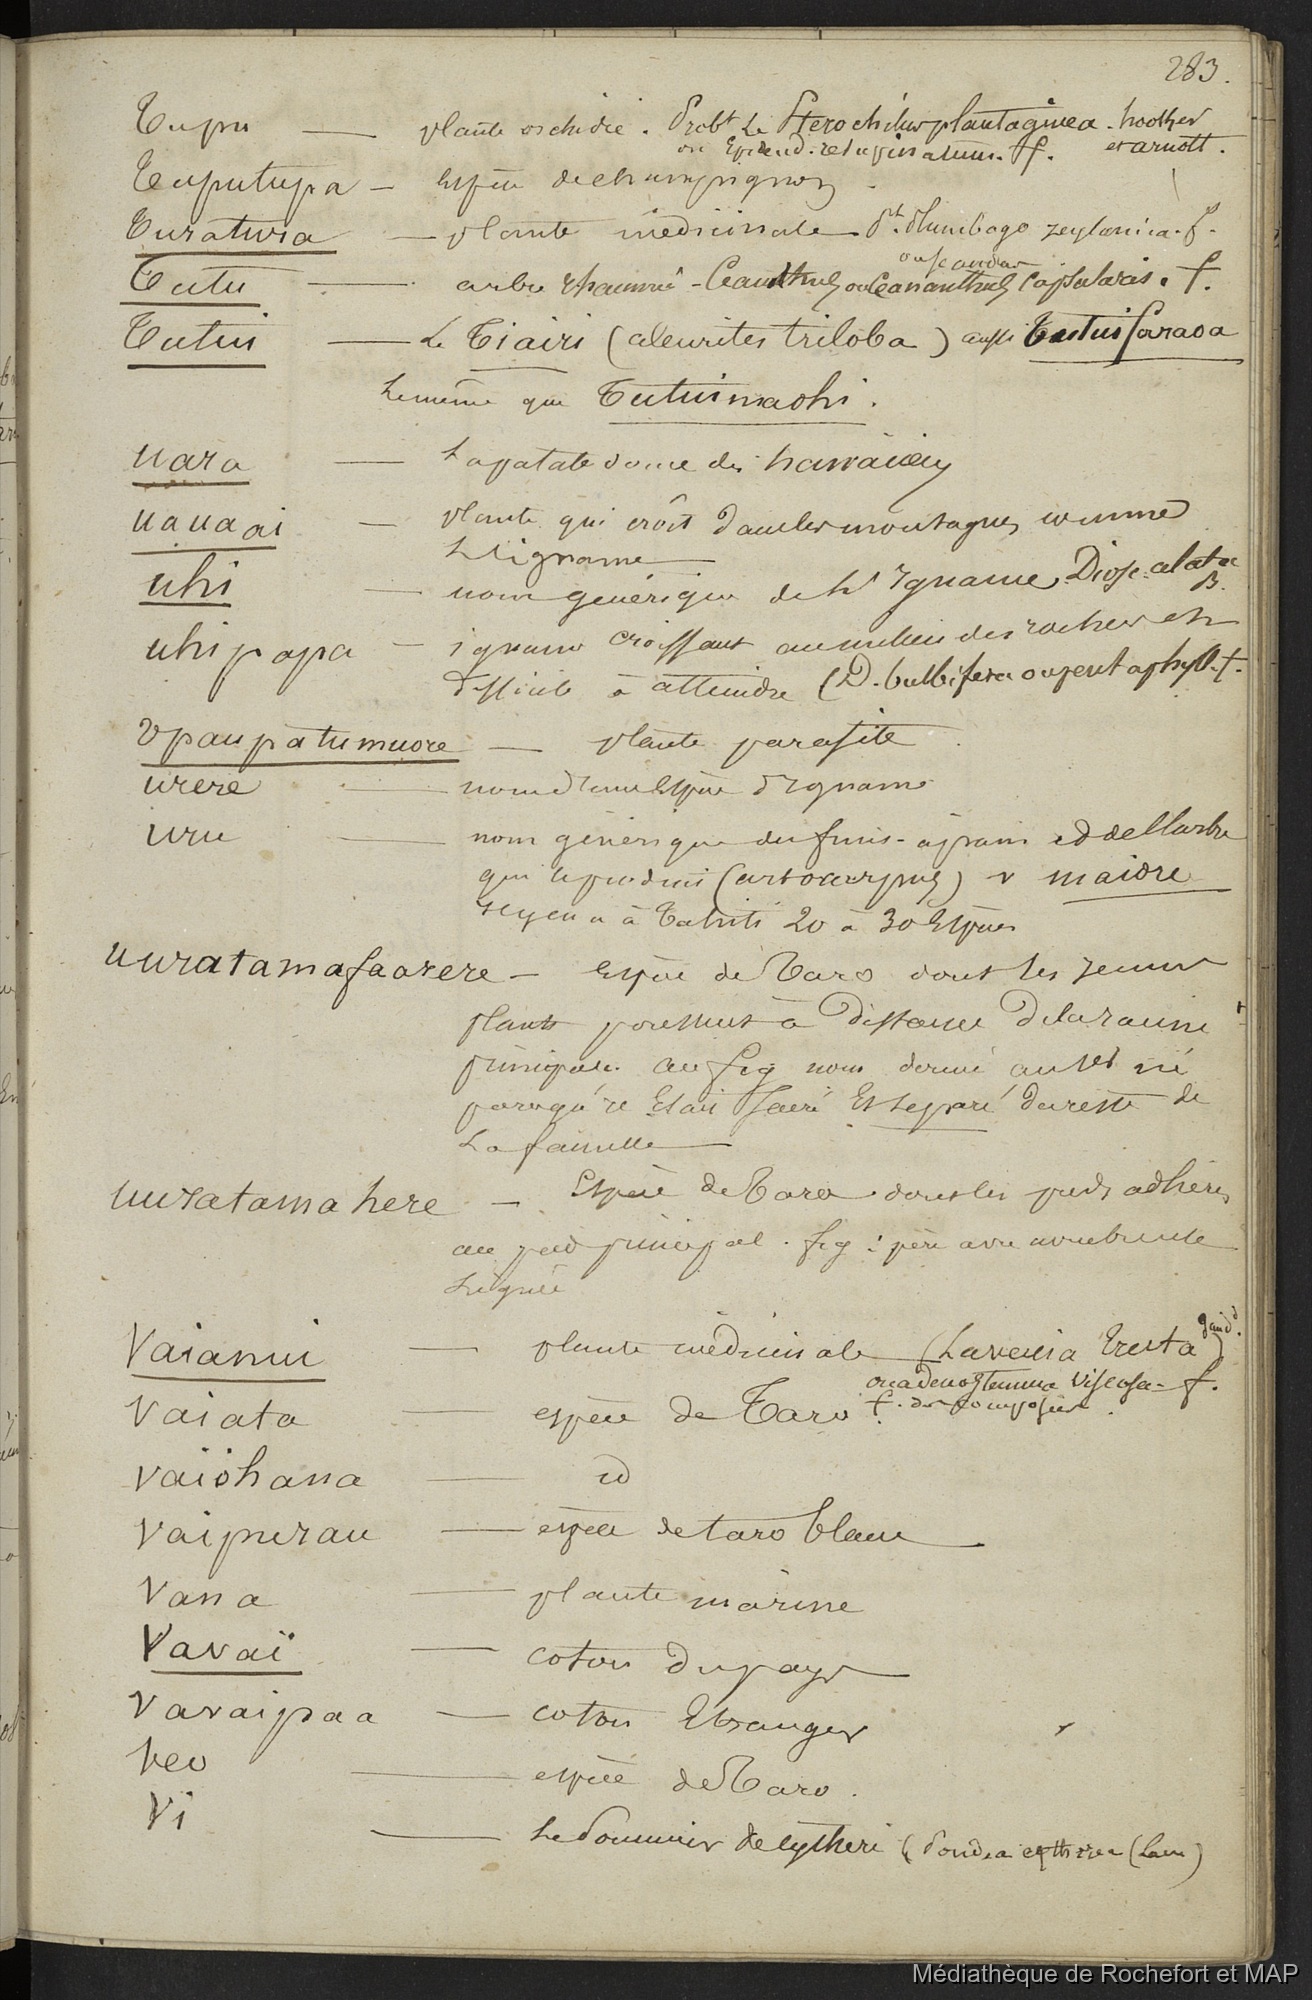 283.
Tupu — plante orchidée. Probt Le Pterochilus plantaginea. hooker
ou Epidend. resupinatum. f. et arnott.
Tuputupa — Espèce de champignon
Turatura — plante médicinale Pt. Plumbago zeylanica. f.
ou scandens
Tutu — arbre rhamné - Ceanothus ou Ceananthus Capsularis. f.
Tutui — Le Tiairi (aleurites triloba) aussi Tutui faraoa
Le même que Tutui maohi.
uara — La patate douce des hawaïens
uauaai — plante qui croît dans les montagnes comme
L'igname
uhi — nom générique de L' Igname, Diosc. alata
B.
uhi papa — igname croissant au milieu des rochers et
difficile à atteindre (D. bulbifera ou pentaphyll. f.
upaupatumuore — plante parasite.
urere — nom d'une Espèce d'Igname
uru — nom générique du fruit-à-pain et de l'arbre
qui le produit (artocarpus) v maiore
Il y en a à Tahiti 20 à 30 Espèces
uuratamafaarere — Espèce de Taro dont les jeunes
plants poussent à distance de la racine
principale. au fig nom donné au
parcequ'il Etait Et séparé du reste de
La famille
uuratamahere — Espèce de Taro dont les pieds adhèrent
au pied principal. fig: père avec
Lignée
Vaianui — plante médicinale (Lavenia Erecta)
ou adenostemma viscosa - f.
f. des composées.
Vaiata — espèce de Taro.
Vaiohana — id
Vaipurau — espèce de taro blanc
Vana — plante marine
Vavaï — coton du pays
Vavaipaa — coton Etranger
Veo — espèce de Taro.
Vï — Le Pommier de cythère (Pondia cytherea (Lam)
Médiathèque de Rochefort et MAP